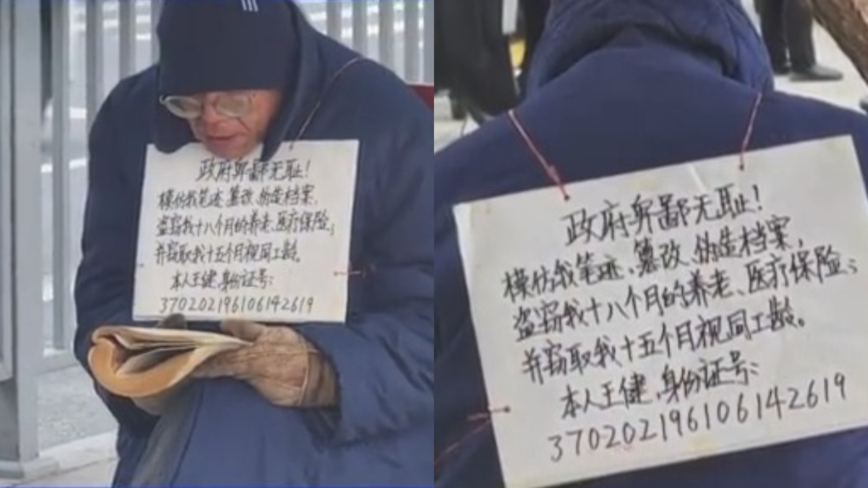 政府卑鄙无耻！
模仿我笔迹、篡改、伪造档案，
盗窃我十八个月的养老、医疗保险；
并窃取我十五个月视同工龄。
本人王健，身份证号：
370202196106142619
政府卑鄙无耻！
模仿我笔迹、篡改、伪造档案，
盗窃我十八个月的养老、医疗保险；
并窃取我十五个月视同工龄。
本人王健，身份证号：
370202196106142619